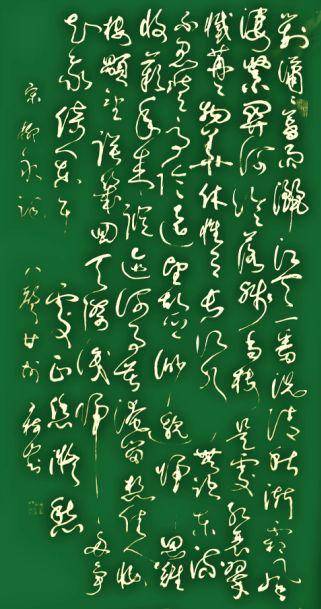 對瀟瀟暮雨灑江天一番洗清秋漸霜風
淒緊關河冷落殘照當樓是處紅衰翠
減苒苒物華休惟有長江水無語東流
不忍登高臨遠望故鄉渺邈歸思難
收嘆年來蹤跡何事苦淹留想佳人妝
樓顒望誤幾回天際識歸舟爭
知我倚闌干處正恁凝愁
宋柳永詞八聲甘州